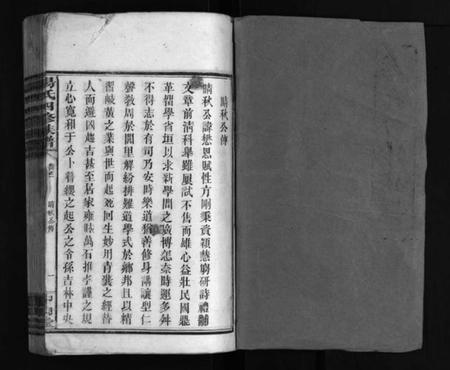 晴秋公傳
晴秋公諱懋恩賦性方剛秉資穎慧窮研詩禮黼
文章前淸科舉雖屢試不售而雄心益壯民國鼎
革儒學省垣以求新學問之廣博怎奈時運多舛
不得志於有司乃安時樂道獨善修身講讓型仁
聲敎周於閭里解紛排難道學式於鄉邦且以精
習岐黃之業與世而起死回生妙用靑囊之經替
人而避凶趨吉甚至居家雍睦萬石推孝謹之規
立心寬和于公卜着綬之起公之令孫吉林中央
氏四修族譜
晴秋公傳
一